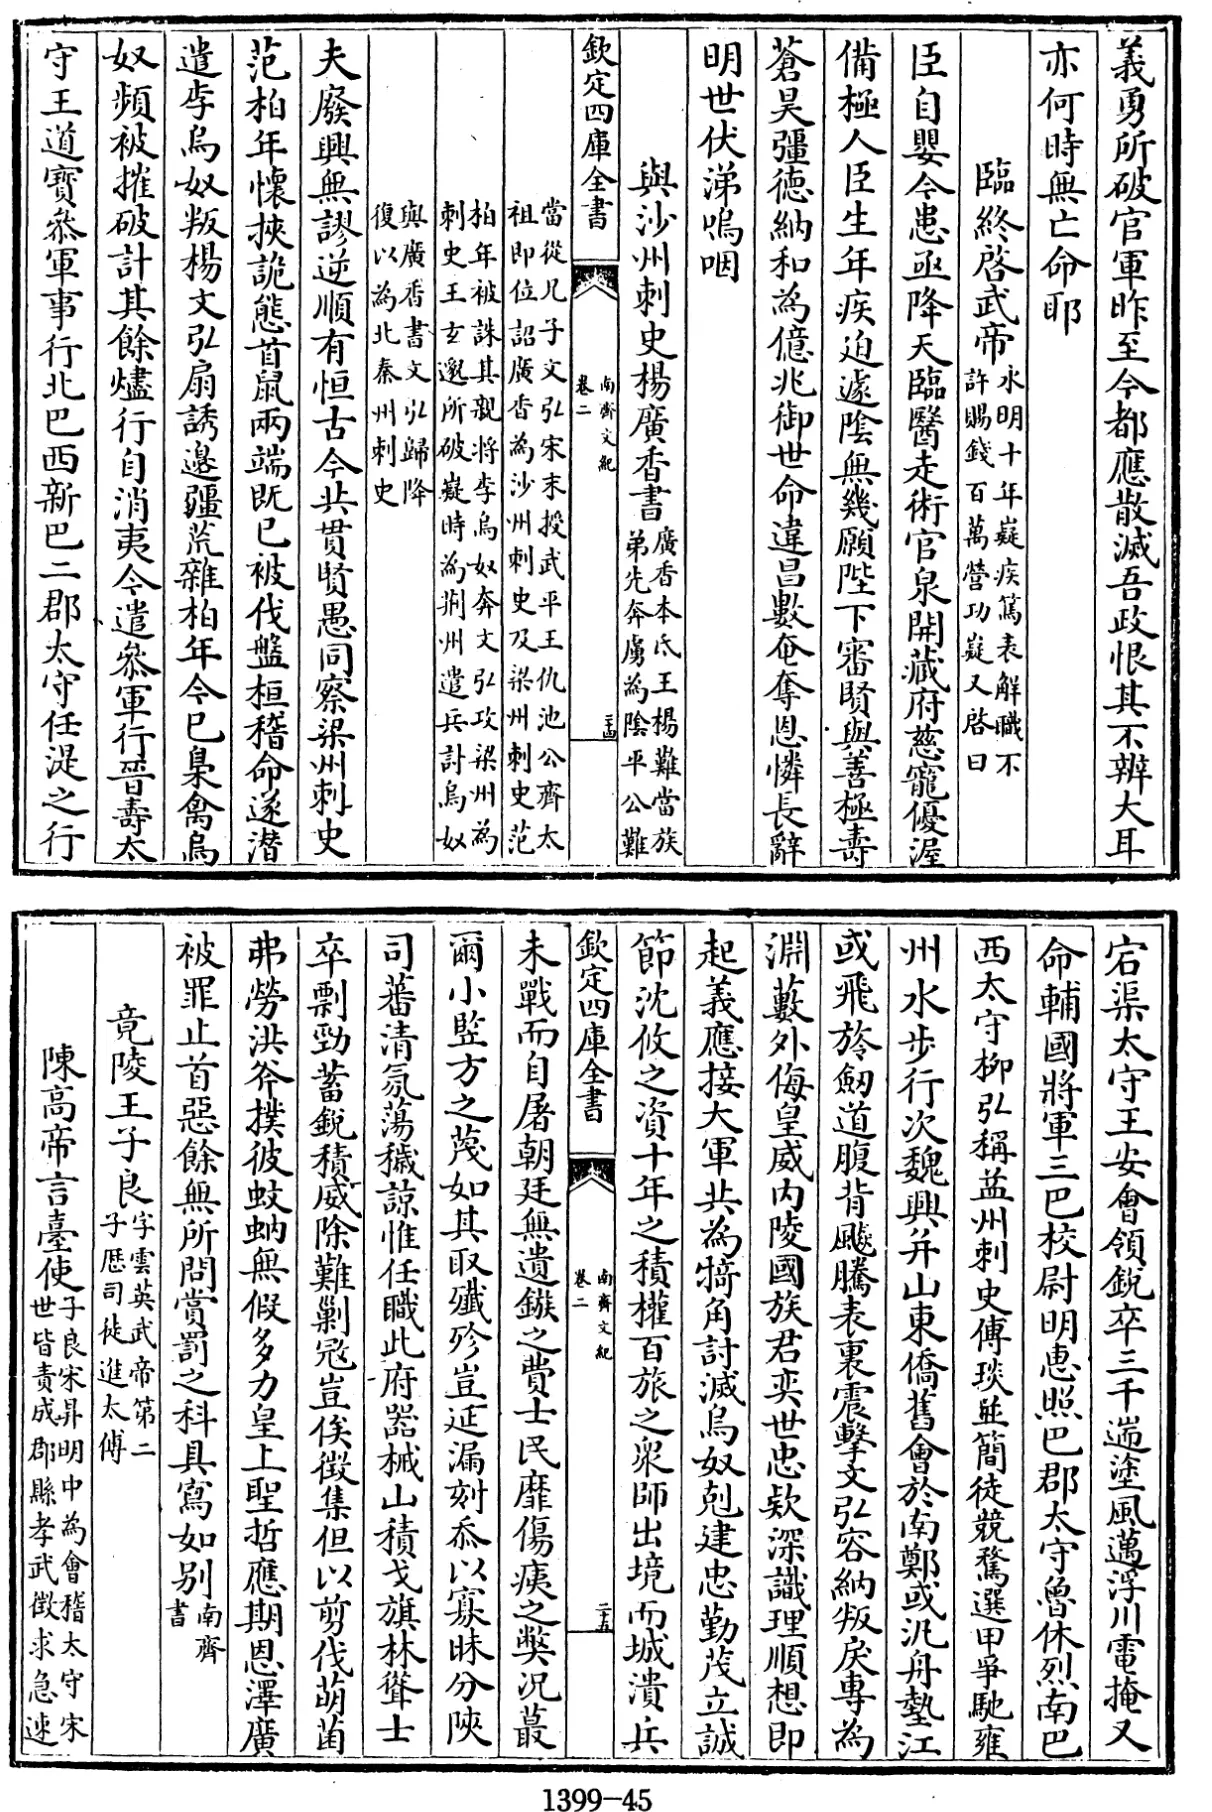 義勇所破官軍昨至今都應散滅吾政恨其不辨大耳
亦何時無亡命耶
臨終啓武帝水明十年嶷疾篤表解職不許賜錢百萬營功嶷又啓曰
臣自嬰今患亟降天臨醫走術官泉開藏府慈寵優渥
備極人臣生年疾迫遽陰無幾願陛下審賢與善極壽
蒼昊彊德納和為億兆御世命違昌數奄奪恩憐長辭
明世伏涕嗚咽
與沙州刺史楊廣香書廣香本氐王楊難當族弟先奔虜為陰平公難
欽定四庫全書
南齊文紀
卷二
二十四
當從兄子文弘宋末授武平王仇池公齊太祖即位詔廣香為沙州刺史及梁州刺史范
柏年被誅其親將李烏奴奔文弘攻梁州為刺史王玄邈所破嶷時為荊州遣兵討烏奴
與廣香書文弘歸降復以為北秦州刺史
夫廢興無謬逆順有恒古今共貫賢愚同察梁州刺史
范柏年懷挾詭態首鼠兩端既已被伐盤桓稽命遂潛
遣李烏奴叛楊文弘扇誘邊疆荒雜柏年今已梟禽烏
奴頻被摧破計其餘燼行自消夷今遣叅軍行晉壽太
守王道寶叅軍事行北巴西新巴二郡太守任湜之行
宕渠太守王安會領銳卒三千遄塗風邁浮川電掩又
命輔國將軍三巴校尉明惠照巴郡太守魯休烈南巴
西太守柳弘稱益州刺史傅琰竝簡徒競騖選甲爭馳雍
州水步行次魏興并山東僑舊會於南鄭或汎舟墊江
或飛旍劒道腹背飈騰表裏震擊文弘容納叛戾專為
淵藪外侮皇威內陵國族君奕世忠欵深識理順想即
起義應接大軍共為犄角討滅烏奴剋建忠勤茂立誠
節沈攸之資十年之積權百旅之衆師出境而城潰兵
欽定四庫全書
南齊文紀
卷二
二十五
未戰而自屠朝廷無遺鏃之費士民靡傷痍之獘況蕞
爾小豎方之蔑如其取殲殄豈延漏刻忝以寡昧分陝
司蕃清氛蕩穢諒惟任職此府器械山積戈旗林聳士
卒剽勁蓄銳積威除難剿寇豈俟徵集但以剪伐萌菌
弗勞洪斧撲彼蚊蚋無假多力皇上聖哲應期恩澤廣
被罪止首惡餘無所問賞罰之科具寫如別南齊書
竟陵王子良字雲英武帝第二子歷司徒進太傅
陳高帝言臺使子良宋昇明中為會稽太守宋世皆責成郡縣孝武徵求急速
1399-45